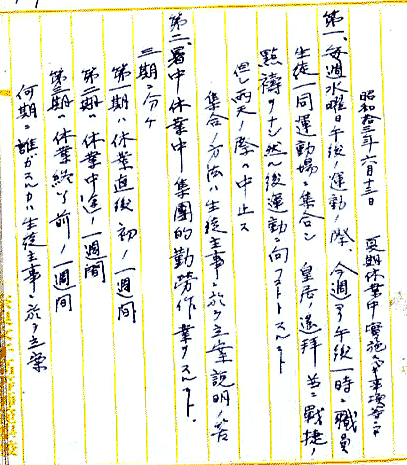 昭和拾三年六月十三日 夏期休業中実施ノ事項等ニ
第一、毎週水曜日午後運動ノ際 今週ヨリ午後一時ニ職員
生徒一同運動場ニ集合シ 皇居ノ遥拝並ニ戦捷ノ
黙祷ヲナシ然ル後運動ニ向フコトトスルコト
但シ雨天ノ際ハ中止ス
集合ノ方法ハ生徒主事ニ於テ立案説明ノ筈
第二、暑中休業中集團的勤労作業ヲスルコト、
三期ニ分ケ
第一期ハ休業直後初ノ一週間
第二期ハ休業中途ノ一週間
第三期ハ休業終了前ノ一週間
何期ニ誰ガスルカハ生徒主事ニ於テ立案